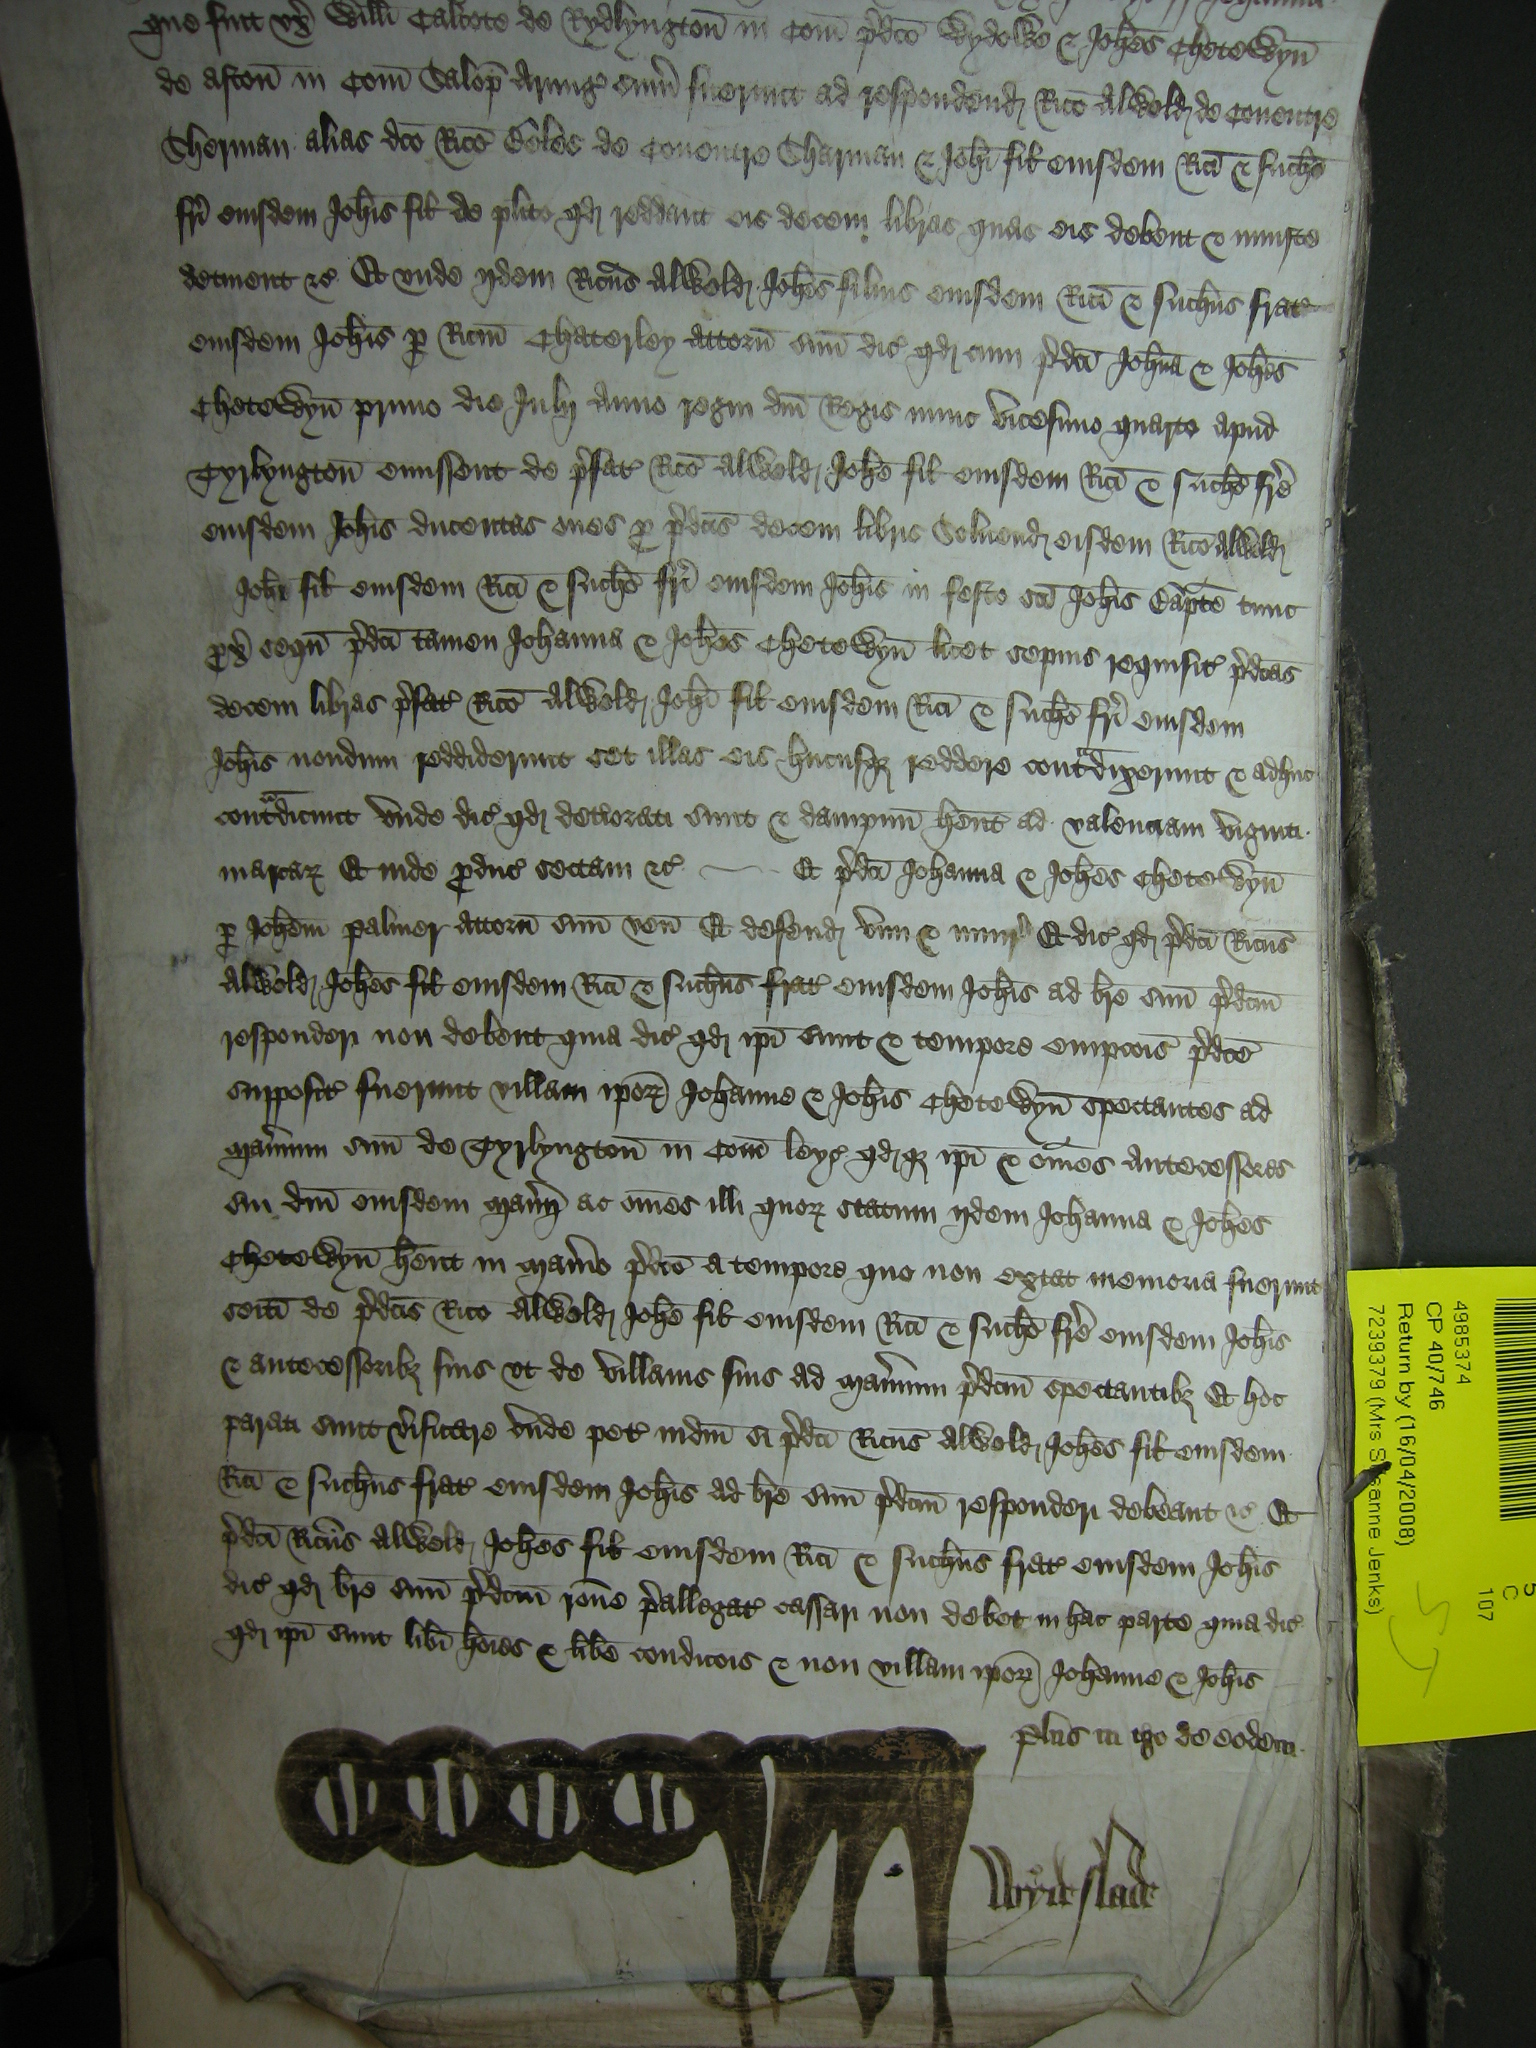 que fuit vx̄ Willi Calcote de Rydlyngton̄ in Com̄ p̄dc̄o Wydowe & Joh̄es Chetewyn̄
de Aston̄ in Com̄ Salop̄ Armig̃ sum̄ fuerunt ad respondend̨ Ric̄o Alwold̨ de Couentre
Sherman alias dc̄o Ric̄o Eles de Couentre Sharman & Joh̄i fil̄ eiusdem Ric̄i & Such̄o
fr̄i eiusdem Joh̄is fil̄ de pl̄ito qd̨ reddant eis decem libras quas eis debent & iniuste
detinent &c̃ Et vnde ijdem Ric̄us Alwold̨ Joh̄es filius eiusdem Ric̄i & Such̄us frat̃
eiusdem Joh̄is p̱ Ric̄m Chaterley attorn̄ suū dic̃ qd̨ cum p̄dc̄i Joh̄na & Joh̄es
Chetewyn̄ primo die Julij Anno regni dn̄i Regis nunc vicesimo quarto apud
Tyrlyngton̄ emissent de p̄fat̃ Ric̄o Alwold̨ Joh̄e fil̄ eiusdem Ric̄i & Such̄o fr̄e
eiusdem Joh̄is ducentas oues p̱ p̄dc̄is decem libris Soluend̨ eisdem Ric̄o Alwold̨
Joh̄i fil̄ eiusdem Ric̄i & Such̄o fr̄i eiusdem Joh̄is in festo sc̄i Joh̄is Bap̄te tunc
p̱x̄ sequn̄ p̄dc̄i tamen Johanna & Joh̄es Chetewyn̄ licet sepius requisit̃ p̄dc̄as
decem libras p̄fat̃ Ric̄o Alwold̨ Joh̄i fil̄ eiusdem Ric̄i & Such̄o fr̄i eiusdem
Joh̄is nondum reddiderunt set illas eis hucusqꝫ reddere cont̃dixerunt & adhuc
cont̃dicunt Vnde dic̃ qd̨ deteriorati sunt & dampnū hēnt ad valenciam viginti
marcaꝝ Et inde p̱duc̃ sectam &c̃ Et p̄dc̄i Johanna & Joh̄es Chetewyn̄
p̱ Joh̄em Palmer attorn̄ suū ven̄ Et defend̨ vim & iniur̃ Et dic̃ qd̨ p̄dc̄i Ric̄us
Alwold̨ Joh̄es fil̄ eiusdem Ric̄i & Such̄us frat̃ eiusdem Joh̄is ad br̄e suū p̄dc̄m
responderi non debent quia dic̃ qd̨ ip̄i sunt & tempore empc̄ois p̄dc̄e
supposit̃ fuerunt villani ip̄oꝝ Johanne & Joh̄is Chetewyn̄ spectantes ad
Man̄ium suū de Tyrlyngton̄ in Com̄ leyc̃ qd̨qꝫ ip̄i & om̄es Antecessores
sui dn̄i eiusdem Man̄ij ac om̄es illi quoꝝ statum ijdem Johanna & Joh̄es
Chetewyn̄ hēnt in Man̄io p̄dc̄o a tempore quo non extat memoria fuerunt
seiti de p̄dc̄is Ric̄o Alwold̨ Joh̄e fil̄ eiusdem Ric̄i & Such̄o fr̄e eiusdem Joh̄is
& antecessoribꝫ suis vt de villanis suis ad Man̄ium p̄dc̄m spectantibꝫ Et hoc
parati sunt v̄ificare Vnde pet̃ iudm̄ si p̄dc̄i Ric̄us Alwold̨ Joh̄es fil̄ eiusdem
Ric̄i & Such̄us frat̃ eiusdem Joh̄is ad br̄e suū p̄dc̄m responderi debeant &c̃ Et
p̄dc̄i Ric̄us Alwold̨ Joh̄es fil̄ eiusdem Ric̄i & Such̄us frat̃ eiusdem Joh̄is
dic̃ qd̨ br̄e suū p̄dc̄m rōne p̄allegat̃ cassari non debet in hac parte quia dic̃
qd̨ ip̄i sunt lib̄i hōies & lib̄e condic̄ois & non villani ip̄oꝝ Johanne & Joh̄is
plus in t̃go de eodem
Wydeslade
4985374
CP 40/746
Return by (16/04/2008)
7239379 (Mrs Susanne Jenks)
5
C
107